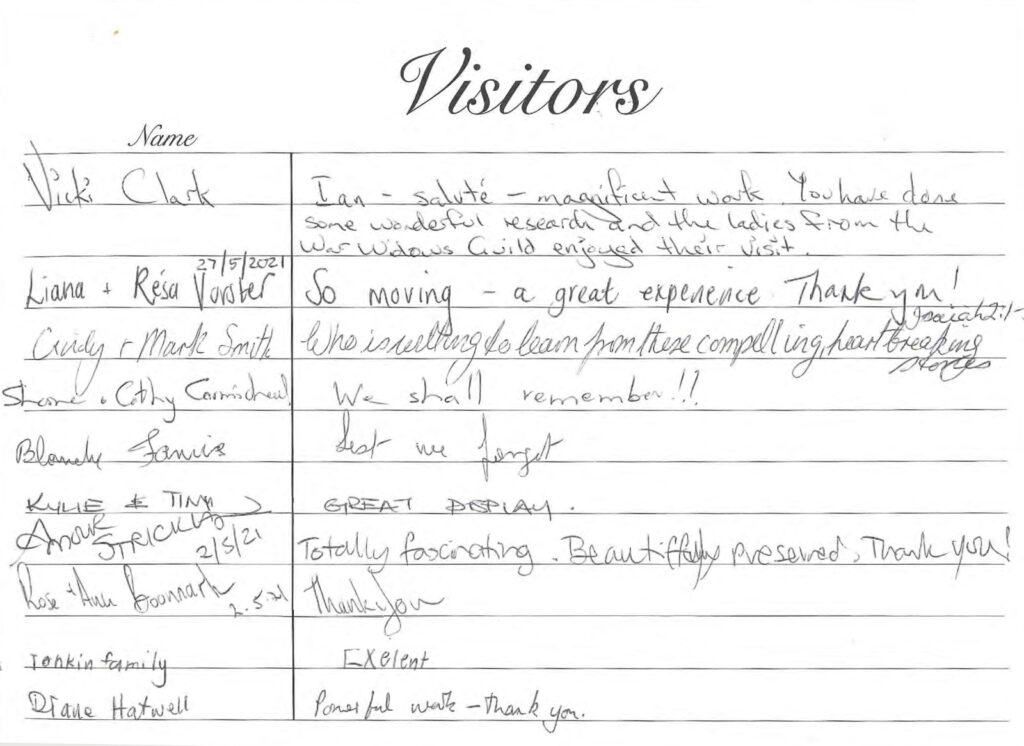 Visitors
Name
Vicki Clark Ian - saluté - magnificent work. You have done
some wonderful research and the ladies from the
War Widows Guild enjoyed their visit.
27/5/2021
Liana + Résa Vorster So moving - a great experience. Thank you!
Isaiah 2:1-
Cindy + Mark Smith Who is willing to learn from these compelling, heart breaking
stories
Shane & Cathy Carmichael We shall remember!!
Blanche Lest we forget
KYLIE & TINA GREAT DISPLAY.
STRICKLAND
2/5/21 Totally fascinating. Beautiffully preserved, Thank you!
Rose + Ann 2.5.21 Thank you
Tonkin family EXelent
Diane Hatwell Powerful work - thank you.